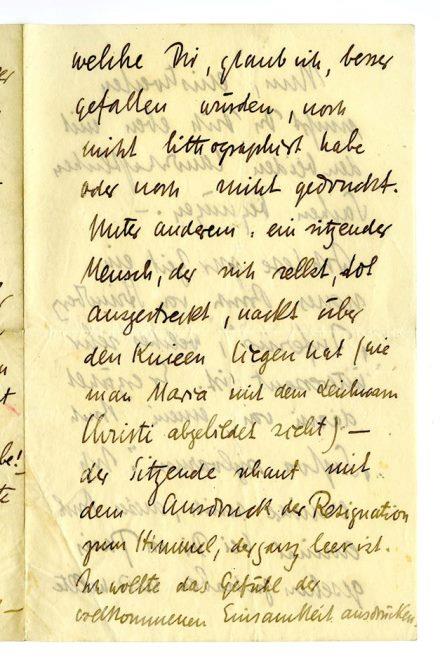 welche Dir, glaub ich, besser
gefallen würden, noch
nicht lithographiert habe
oder noch nicht gedruckt.
Unter anderem: ein sitzender
Mensch, der sich selbst, tot
ausgestreckt, nackt über
den Knieen liegen hat (wie
man Maria mit dem Leichnam
Christi abgebildet sieht) —
der Sitzende schaut mit
dem Ausdruck der Resignation
zum Himmel, der ganz leer ist.
Ich wollte das Gefühl der
vollkommenen Einsamkeit ausdrücken.